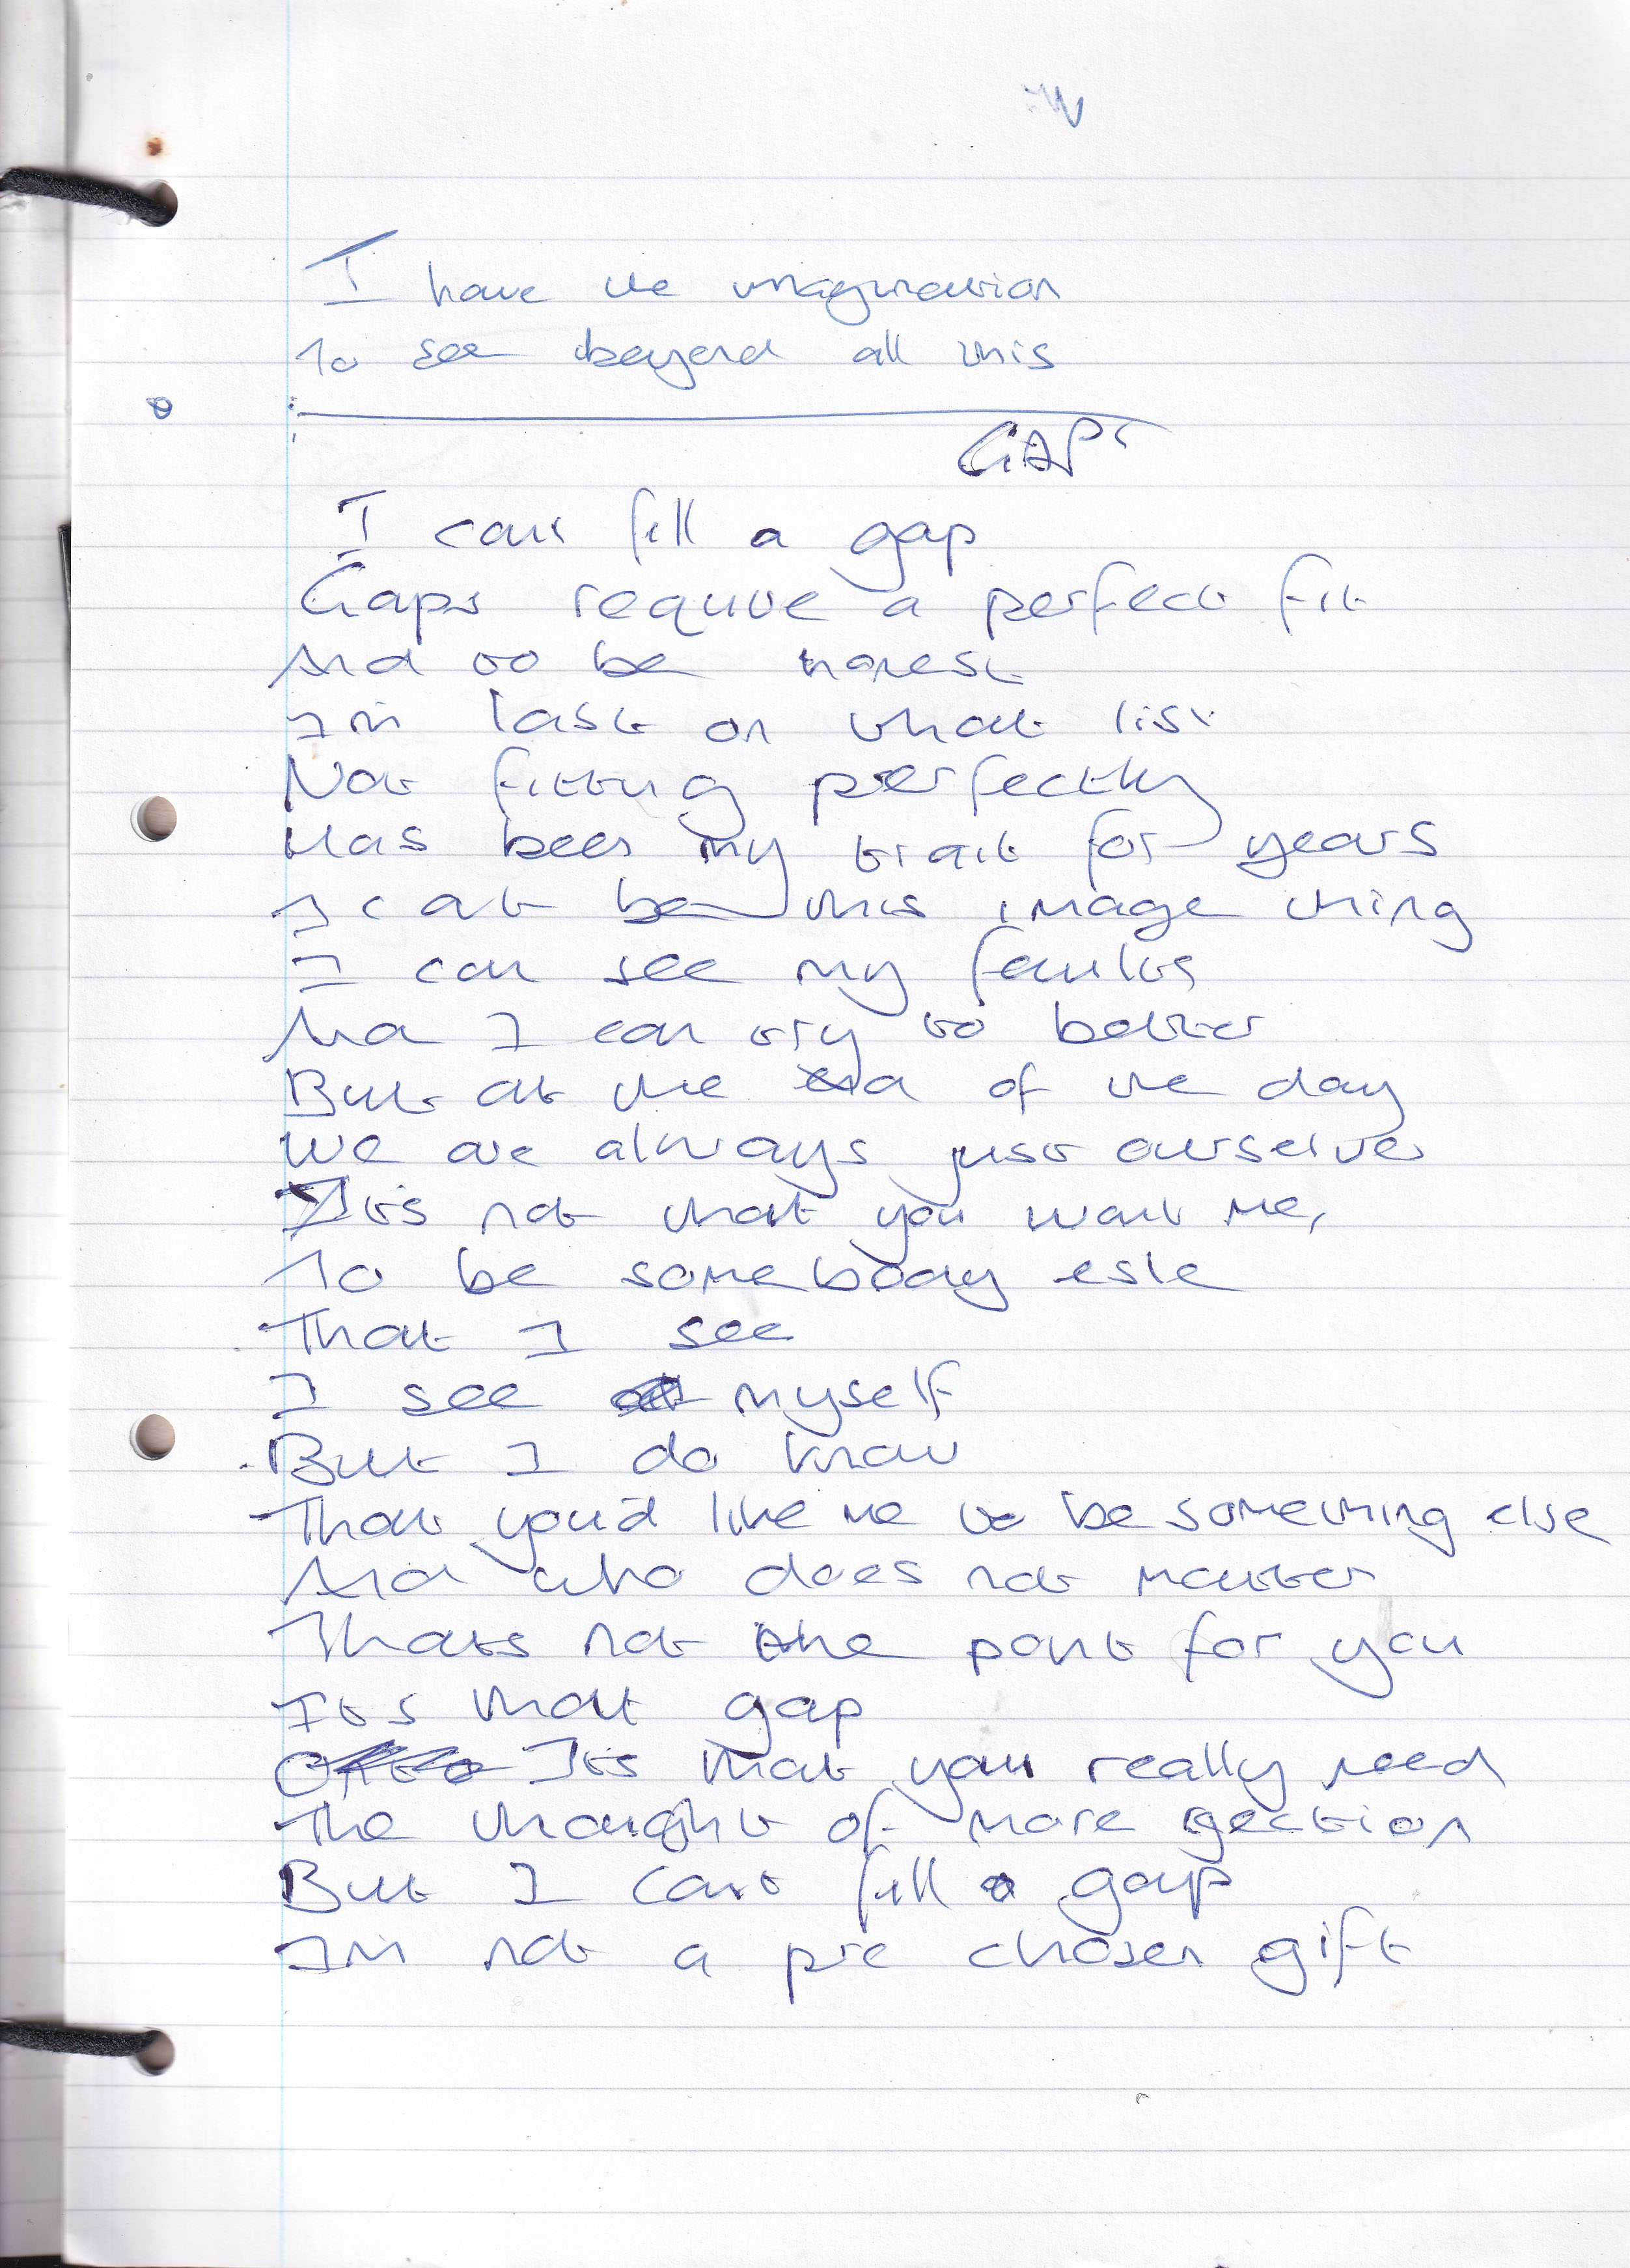 I have the imagination
To see beyond all this
GAPS
I cant fill a gap
Gaps require a perfect fit
And to be honest
Im last on that list
Not fitting perfectly
Has been my trait for years
I cat be this image thing
I can see my faults
And I can try to better
But at the end of the day
We are always just ourselves
Its not that you want me,
To be somebody esle
That I see
I see myself
But I do know
That you'd like me to be something else
And who does not matter
Thats not the pont for you
Its that gap
Its that you really need
The thought of more rejection
But I cant fill a gap
Im not a pre chosen gift